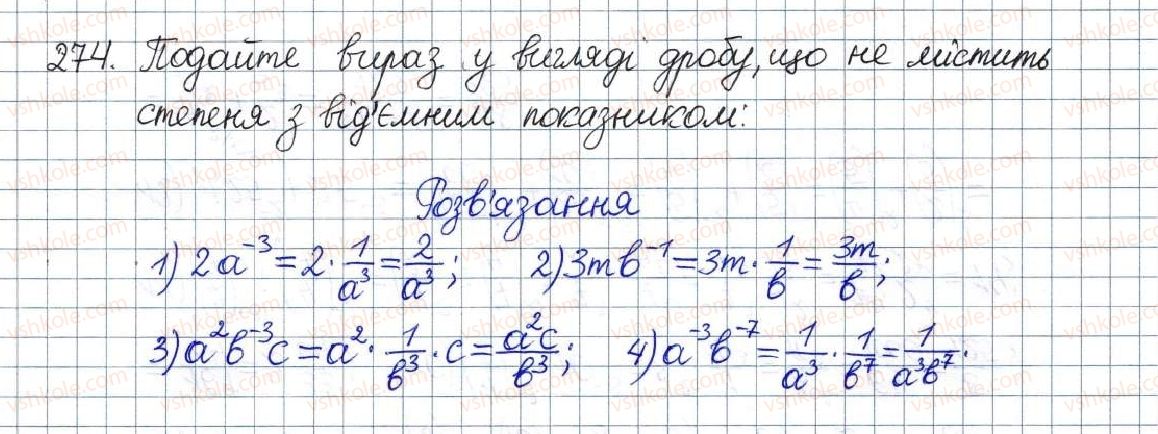 274. Подайте вираз у вигляді дробу, що не містить
степеня з від'ємним показником:
Розв'язання
1) 2a⁻³ = 2 · 1/a³ = 2/a³; 2) 3mb⁻¹ = 3m · 1/b = 3m/b;
3) a²b⁻³c = a² · 1/b³ · c = a²c/b³; 4) a⁻³b⁻⁷ = 1/a³ · 1/b⁷ = 1/a³b⁷.